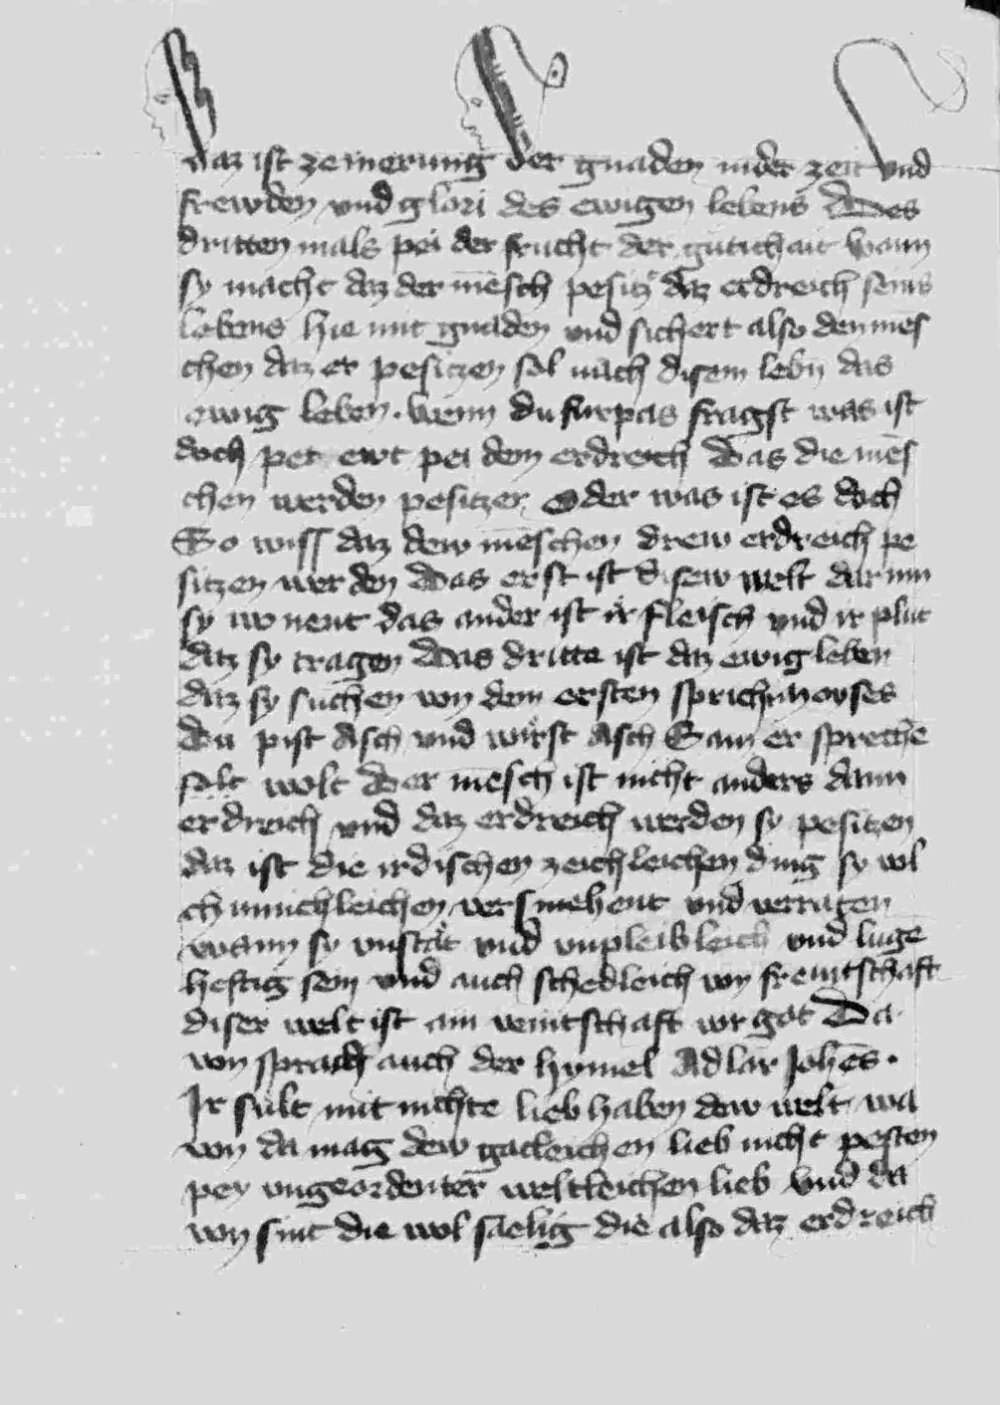 daz ist ze merung der gnaden in der zeit und
frewden und glori des ewigen lebens Des
dritten mals pei der frucht der gütichait wann
sy macht daz der mēsch pesitz daz erdreich seins
lebens hie mit gnaden und sichert also den mēs
chen daz er pesitzen sol nach disem lebn̄ das
ewig leben. wenn du furpas fragst was ist
doch pet ewt pei dem erdreich Das die mēs
chen werden pesitzen Oder was ist es doch
So wiss daz dew mēschen drew erdreich pe
sitzen werden Das erst ist disew welt dar inn
sy wonent das ander ist ir fleisch und ir plut
daz sy tragen Das dritte ist daz ewig leben
daz sy suchen von dem ersten sprich moyses
Du pist Asch und wirst Asch Sam er sprechē
solt wolt Der mēsch ist nicht anders dann
erdreich und daz erdreich werden sy pesitzen
daz ist die irdischen zeichleichen ding sy wol
chunnichleichen versmehent und verraten
wann sy unstät und unpleibleich und lugē
heftig sein und auch schedleich von freuntschaft
diser welt ist ain veintschaft vor got Da
von sprach auch der hymel Adlar Johēs.
Ir sult mit nichte lieb haben dew welt wa
von da mag dew gotleichen lieb nicht pesten
pey ungeordenter weltleichen lieb Und da
von sint die wol saelig die also daz erdreich